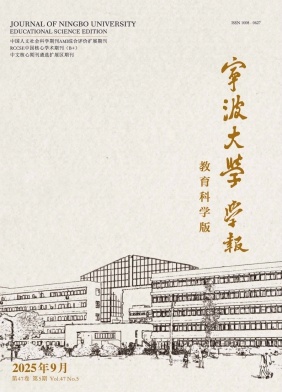 JOURNAL OF NINGBO UNIVERSITY
EDUCATIONAL SCIENCE EDITION
中国人文社会科学期刊AMI综合评价扩展期刊
RCCSE中国核心学术期刊（B+）
中文核心期刊遴选扩展区期刊
ISSN 1008-0627
宁波大學 学報
教育科学版
2025年9月
第47卷 第5期 Vol.47 No.5